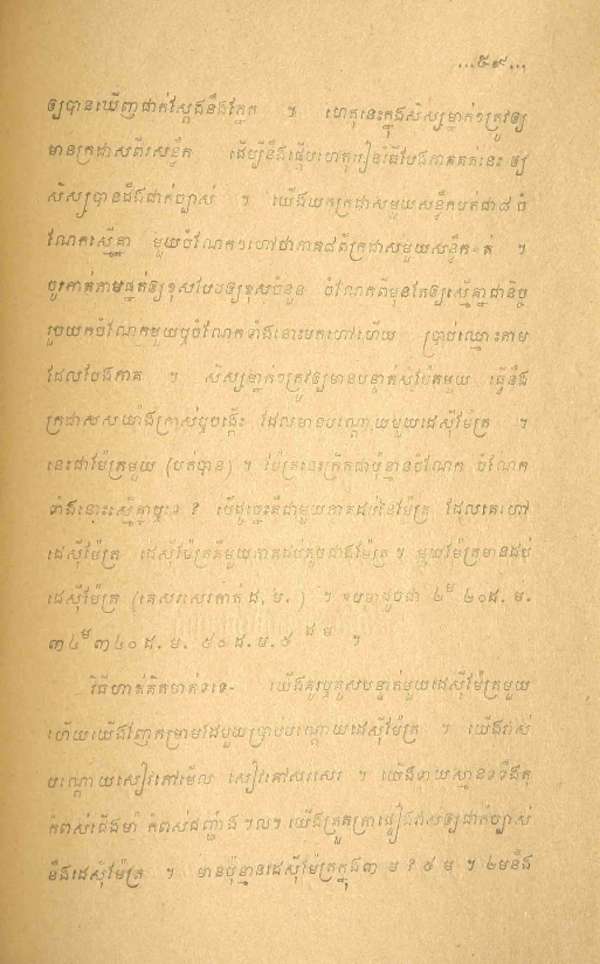 ...៥៩...
ឲ្យបានឃើញជាក់ស្ដែងនឹងភ្នែក ៕ ហេតុនេះក្នុងសិស្សម្នាក់ៗត្រូវឲ្យ
មានក្រដាសពីរសន្លឹក ដើម្បីនឹងផ្ដើមហេតុរៀនវិធីបែងភាគគត់នេះ ឲ្យ
សិស្សបានដឹងជាក់ច្បាស់ ។ យើងយកក្រដាសមួយសន្លឹកបត់ជា៨ ចំ
ណែកស្មើគ្នា មួយចំណែកៗហៅថាភាគ៨នៃក្រដាសមួយសន្លឹក ។
ចូរកាត់តាមផ្នត់ឲ្យខុសបែបឲ្យខុសចំនួន ចំណែកពីមុនតែឲ្យស្មើគ្នាជានិច្ច
រួចយកចំណែកមួយឬចំណែកទាំងនោះមកហៅហើយ ប្រាប់ឈ្មោះតាម
ដែលបែងភាគ ។ សិស្សម្នាក់ៗត្រូវឲ្យមានបន្ទាត់ ម៉ែត្រមួយ ធ្វើនឹង
ក្រដាសសយ៉ាងក្រាស់ឬបង្កើះ ដែលមានបណ្ដោយមួយដេស៊ីម៉ែត្រ ។
នេះជាម៉ែត្រមួយ (បត់បាន) ។ ម៉ែត្រនេះក្រឹតជាប៉ុន្មានចំណែក ចំណែក
ទាំងនោះស្មើគ្នាឬទេ ? បើដូច្នេះគឺជាមួយភាគដប់នៃម៉ែត្រ ដែលគេហៅ
ដេស៊ីម៉ែត្រ ដេស៊ីម៉ែត្រគឺមួយភាគដប់តូចជាងម៉ែត្រ ។ មួយម៉ែត្រមានដប់
ដេស៊ីម៉ែត្រ (គេសរសេរកាត់ ដ. ម. ) ។ ឧបមាដូចជា ២ម ២០ដ. ម.
៣៤ម ៣៤០ ដ. ម. ៥០ ដ.ម. ៥ ដ ម ។
វិធីហាត់គិតមាត់ទទេ- យើងគូរឬគូសបន្ទាត់មួយដេស៊ីម៉ែត្រមួយ
ហើយយើងញែកម្រាមដៃមួយប្រាប់បណ្ដោយដេស៊ីម៉ែត្រ ។ យើងវាស់
បណ្ដោយសៀវភៅមើល សៀវភៅសរសេរ ។ យើងទាយស្មានទទឹងតុ
កំពស់ជើងម៉ា កំពស់ជញ្ជាំង ។ល។ យើងត្រួតត្រាផ្ទៀងវាស់ឲ្យជាក់ច្បាស់
នឹងដេស៊ីម៉ែត្រ ។ មានប៉ុន្មានដេស៊ីម៉ែត្រក្នុង៣ ម ? ៥ ម ។ ២មនឹង